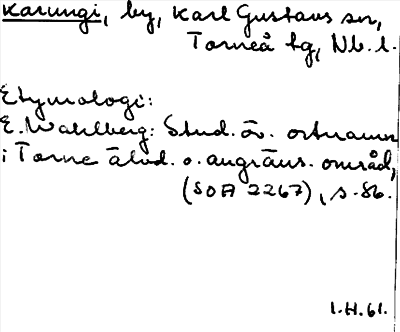 Karungi, by, Karl Gustavs sn,
Torneå tg, Nb. l.
Etymologi:
E. Wahlberg: Stud. öv. ortnamn
i Torne älvd. o. angräns. område,
(SOA 2267), s. 86.
1.H.61.